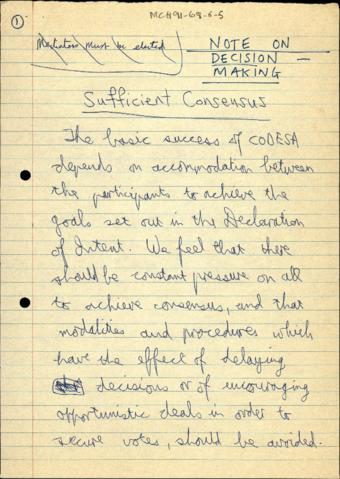 MCH91-69-6-5
1
Mediators must be elected
NOTE ON
DECISION -
MAKING
Sufficient Consensus
The basic success of CODESA
depends on accommodation between
the participants to achieve the
goals set out in the Declaration
of Intent. We feel that there
should be constant pressure on all
to achieve consensus, and that
modalities and procedures which
have the effect of delaying
decisions or of encouraging
opportunistic deals in order to
secure votes, should be avoided.